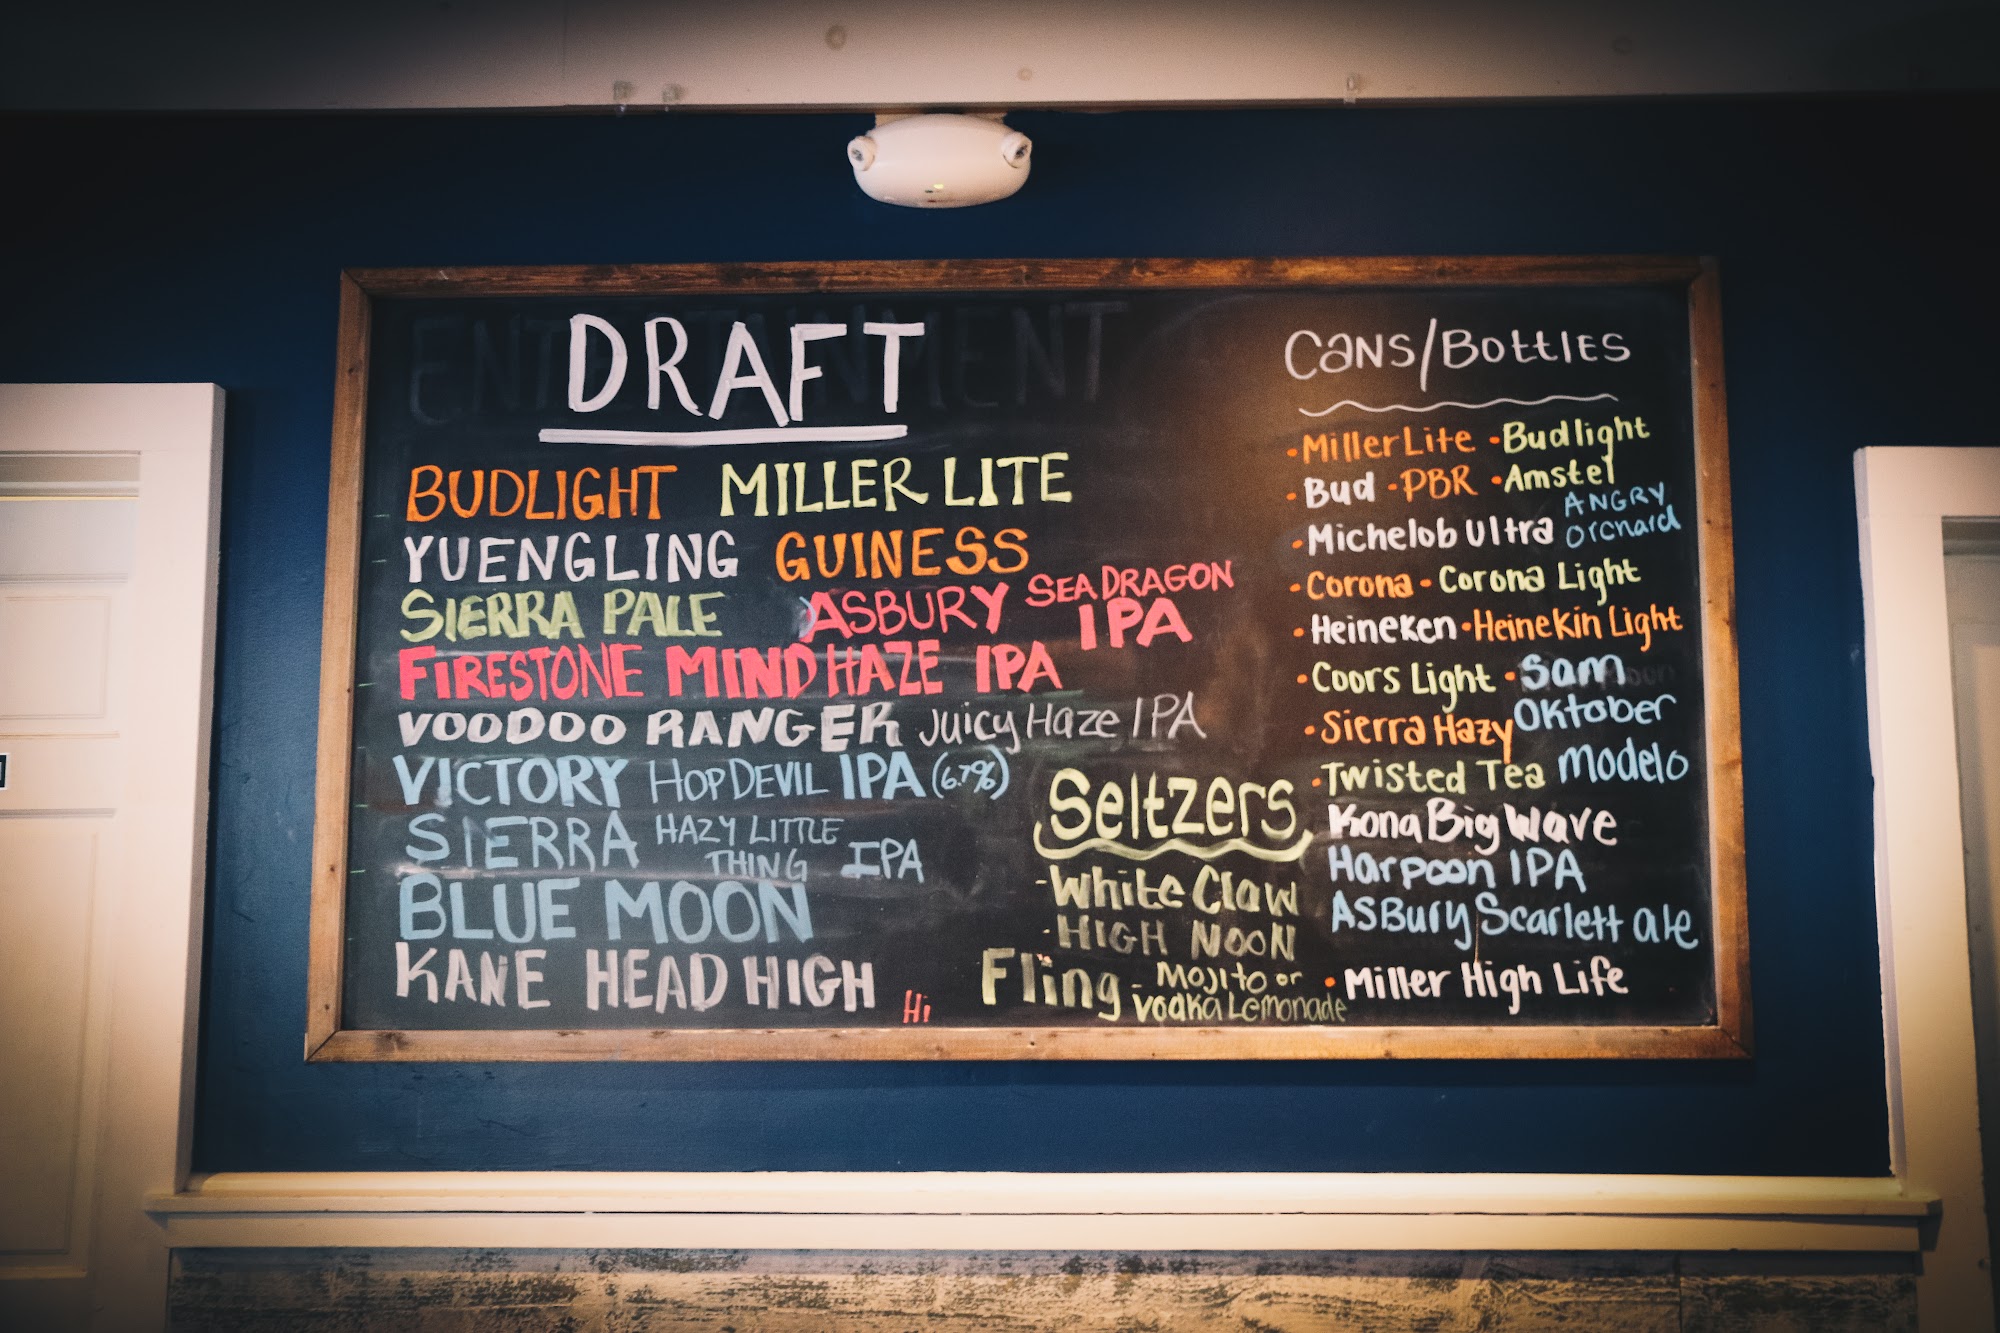 ENTERTAINMENT
DRAFT
BUDLIGHT MILLER LITE
YUENGLING GUINESS
SIERRA PALE ASBURY SEA DRAGON IPA
FIRESTONE MIND HAZE IPA
VOODOO RANGER Juicy Haze IPA
VICTORY HOP DEVIL IPA (6.7%)
SIERRA HAZY LITTLE THING IPA
BLUE MOON
KANE HEAD HIGH
Hi
Seltzers
- White Claw
- HIGH NOON
Fling - MOJITO or
Vodka Lemonade
Cans/Bottles
• Miller Lite • Budlight
• Bud • PBR • Amstel
• Michelob Ultra ANGRY Orchard
• Corona • Corona Light
• Heineken • Heinekin Light
• Coors Light • Sam Oktober
• Sierra Hazy
• Twisted Tea Modelo
Kona Big Wave
Harpoon IPA
ASBury Scarlett ale
• Miller High Life